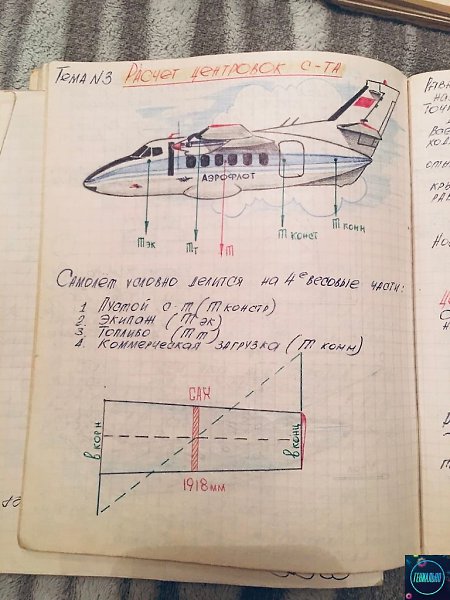 Тема N3 Расчет центровок с-та
АЭРОФЛОТ
m эк
m т
m
m конст
m конн
Самолет условно делится на 4е весовые части:
1 Пустой с-т (m констр)
2. Экипаж (m эк)
3. Топливо (m т)
4. Коммерческая загрузка (m конн)
САХ
в корн
в конц
1918 мм
ГЕНИАЛЬНО